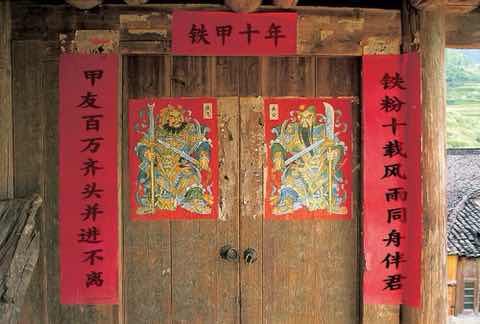 铁甲十年
铁粉十载风雨同舟伴君
甲友百万齐头并进不离